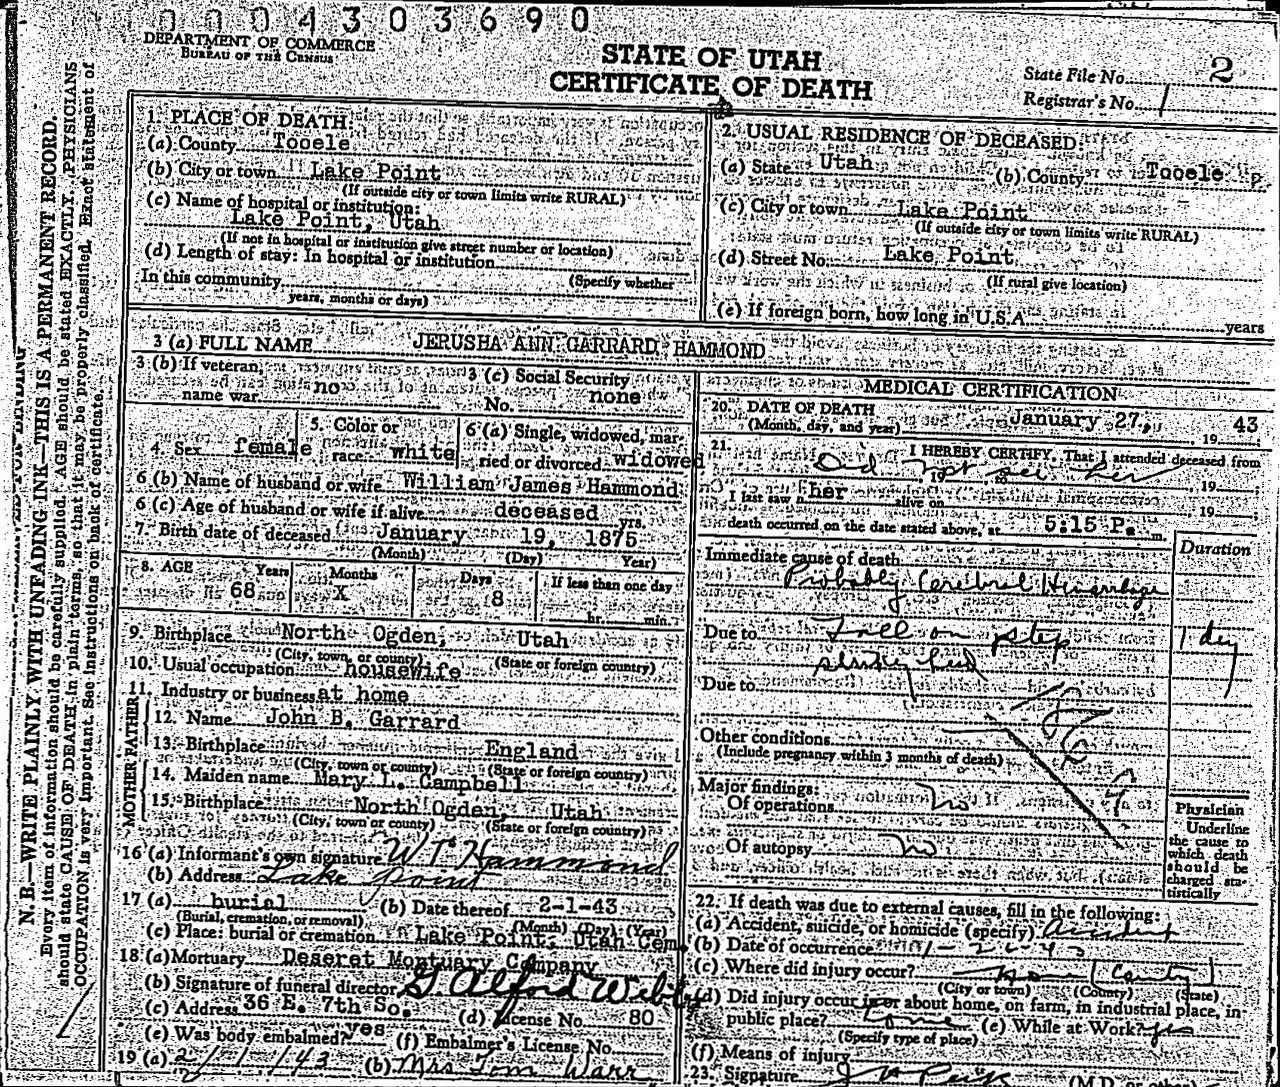 0004303690
DEPARTMENT OF COMMERCE
BUREAU OF THE CENSUS
STATE OF UTAH
CERTIFICATE OF DEATH
State File No. 2
Registrar's No. 1
N. B.—WRITE PLAINLY WITH UNFADING INK—THIS IS A PERMANENT RECORD.
Every item of information should be carefully supplied. AGE should be stated EXACTLY. PHYSICIANS
should state CAUSE OF DEATH in plain terms, so that it may be properly classified. Exact statement of
OCCUPATION is very important. See instructions on back of certificate.
1. PLACE OF DEATH:
(a) County Tooele
(b) City or town Lake Point
(If outside city or town limits write RURAL)
(c) Name of hospital or institution:
Lake Point, Utah
(If not in hospital or institution give street number or location)
(d) Length of stay: In hospital or institution
(Specify whether
In this community
years, months or days)
2. USUAL RESIDENCE OF DECEASED:
(a) State Utah (b) County Tooele
(c) City or town Lake Point
(If outside city or town limits write RURAL)
(d) Street No. Lake Point
(If rural give location)
(e) If foreign born, how long in U.S.A. years
3 (a) FULL NAME JERUSHA ANN GARRARD HAMMOND
3 (b) If veteran, name war no
3 (c) Social Security No. none
4. Sex female
5. Color or race white
6 (a) Single, widowed, married or divorced widowed
6 (b) Name of husband or wife William James Hammond
6 (c) Age of husband or wife if alive deceased yrs.
7. Birth date of deceased January 19, 1875
(Month) (Day) Year)
8. AGE Years 68 Months X Days 8 If less than one day hr. min.
9. Birthplace North Ogden, Utah
(City, town, or county) (State or foreign country)
10. Usual occupation housewife
11. Industry or business at home
FATHER
12. Name John B. Garrard
13. Birthplace England
(City, town, or county) (State or foreign country)
MOTHER
14. Maiden name Mary L. Campbell
15. Birthplace North Ogden, Utah
(City, town or county) (State or foreign country)
16 (a) Informant's own signature W T Hammond
(b) Address Lake Point
17 (a) burial (b) Date thereof 2-1-43
(Burial, cremation, or removal) (Month) (Day) (Year)
(c) Place: burial or cremation Lake Point, Utah Cem.
18 (a) Mortuary Deseret Mortuary Company
(b) Signature of funeral director G. Alford Webb
(c) Address 36 E. 7th So. (d) License No. 80
(e) Was body embalmed? yes (f) Embalmer's License No.
19 (a) 2/1/43 (b) Mrs Tom Warr
MEDICAL CERTIFICATION
20. DATE OF DEATH
(Month, day, and year) January 27, 19 43
21. I HEREBY CERTIFY, That I attended deceased from
Did not see her, 19
I last saw her alive on , 19
death occurred on the date stated above, at 5:15 P. m.
Duration
Immediate cause of death
Probably Cerebral Hemorrhage
Due to Fall on step 1 day
striking head
Due to
Other conditions
(Include pregnancy within 3 months of death)
Major findings:
Of operations no
Of autopsy no
Physician
Underline
the cause to
which death
should be
charged sta-
tistically
22. If death was due to external causes, fill in the following:
(a) Accident, suicide, or homicide (specify) Accident
(b) Date of occurrence
(c) Where did injury occur? Home (County)
(City or town) (County) (State)
(d) Did injury occur in or about home, on farm, in industrial place, in
public place? Home (e) While at Work? yes
(Specify type of place)
(f) Means of injury
23. Signature